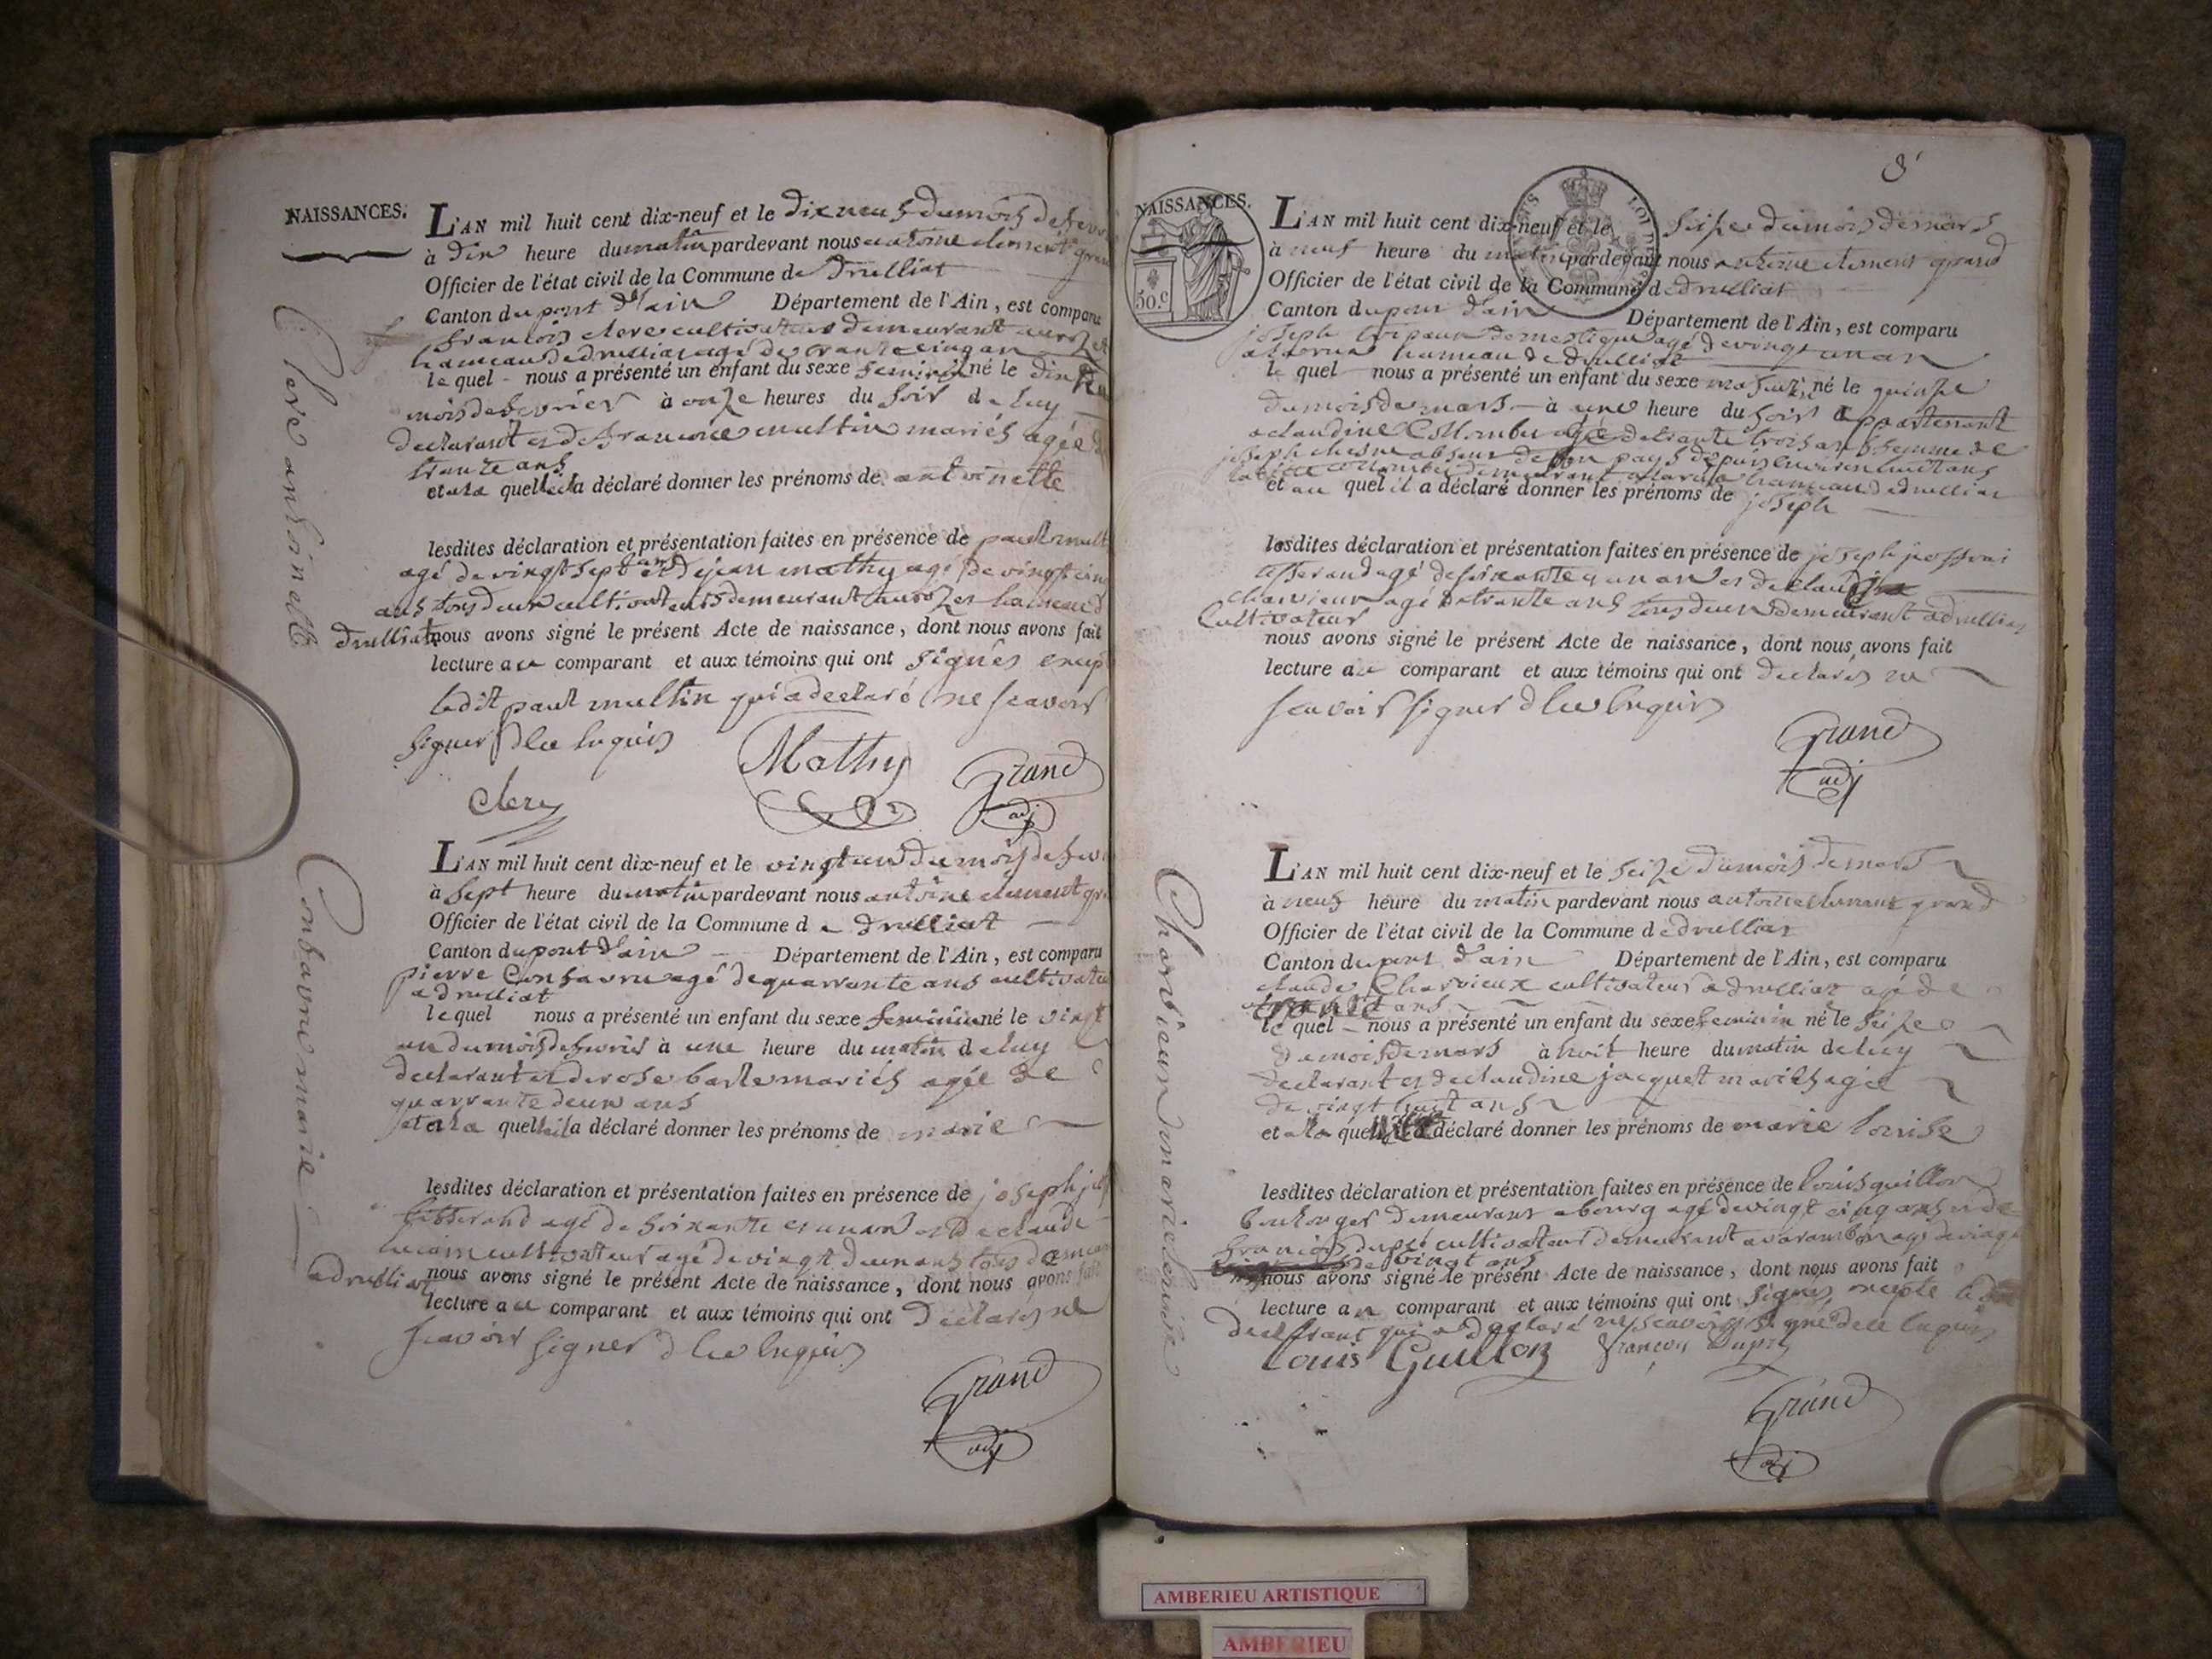 NAISSANCES.
L'AN mil huit cent dix-neuf et le dix neuf du mois de fevr
à dix heure du matin pardevant nous antoine clement gran
Officier de l'état civil de la Commune de Druilliat
Canton du pont d'ain Département de l'Ain, est comparu
francois clere cultivateur demeurant
hameau de druilliat agé de trante cinq an
le quel nous a présenté un enfant du sexe feminin né le dix
mois de fevrier à onze heures du soir de luy
declarant et de francoise multin mariés agée d
trante ans
et a la quelle il a déclaré donner les prénoms de antoinette
lesdites déclaration et présentation faites en présence de paul mult
agé de vingt sept ans et de jean mathy agé de vingt cinq
ans tous deux cultivateurs demeurant hameau d
druilliat nous avons signé le présent Acte de naissance, dont nous avons fait
lecture au comparant et aux témoins qui ont signés exept
ledit paul multin qui a declaré ne scavoir
signer d ce enquis
Mathy Grand
clere adj
Clere antoinette
L'AN mil huit cent dix-neuf et le vingt un du mois de fevr
à sept heure du matin pardevant nous antoine clement gra
Officier de l'état civil de la Commune de druilliat
Canton du pont d'ain Département de l'Ain, est comparu
pierre agé de quarrante ans cultivateu
a druilliat
le quel nous a présenté un enfant du sexe feminin né le vingt
un du mois de fevrier à une heure du matin de luy
declarant et de rose mariés agée de
quarrante deux ans
et a la quelle il a déclaré donner les prénoms de marie
lesdites déclaration et présentation faites en présence de joseph
tisserand agé de soixante et un an et de claude
cultivateur agé de vingt deux ans tous
a druilliat nous avons signé le présent Acte de naissance, dont nous avons fait
lecture au comparant et aux témoins qui ont declarés ne
scavoir signer d ce enquis
Grand
adj
marie
8
NAISSANCES.
50 c
L'AN mil huit cent dix-neuf et le seize du mois de mars
à neuf heure du matin pardevant nous antoine clement grand
Officier de l'état civil de la Commune de druilliat
Canton du pont d'ain Département de l'Ain, est comparu
joseph domestique agé de vingt un an
hameau de druilliat
le quel nous a présenté un enfant du sexe masculin né le quinze
du mois de mars à une heure du soir apartenant
a claudine agée de trante trois ans femme de
joseph absent de son pays depuis environ huit ans
demeurant hameau de druilliat
et au quel il a déclaré donner les prénoms de joseph
lesdites déclaration et présentation faites en présence de joseph
tisserand agé de soixante et un an et de claude
charvieux agé de trante ans tous deux demeurant a druilliat
cultivateur
nous avons signé le présent Acte de naissance, dont nous avons fait
lecture au comparant et aux témoins qui ont declarés ne
scavoir signer d ce enquis
Grand
adj
L'AN mil huit cent dix-neuf et le seize du mois de mars
à neuf heure du matin pardevant nous antoine clement grand
Officier de l'état civil de la Commune de druilliat
Canton du pont d'ain Département de l'Ain, est comparu
claude Charvieux cultivateur a druilliat agé de
trante ans
le quel nous a présenté un enfant du sexe feminin né le seize
du mois de mars à huit heure du matin de luy
declarant et de claudine jacquet mariés agée
de vingt huit ans
et a la quelle il a déclaré donner les prénoms de marie louise
lesdites déclaration et présentation faites en présence de louis guillon
boulanger demeurant a bourg agé de vingt cinq ans et de
francois dupré cultivateur demeurant a varambon agé de vingt
de vingt ans
nous avons signé le présent Acte de naissance, dont nous avons fait
lecture au comparant et aux témoins qui ont signés, exepte le dit
declarant qui a declaré ne scavoir signé de ce enquis
Louis Guillon françois Dupré
Grand
adj
Charvieux marie louise
AMBERIEU ARTISTIQUE
AMBERIEU